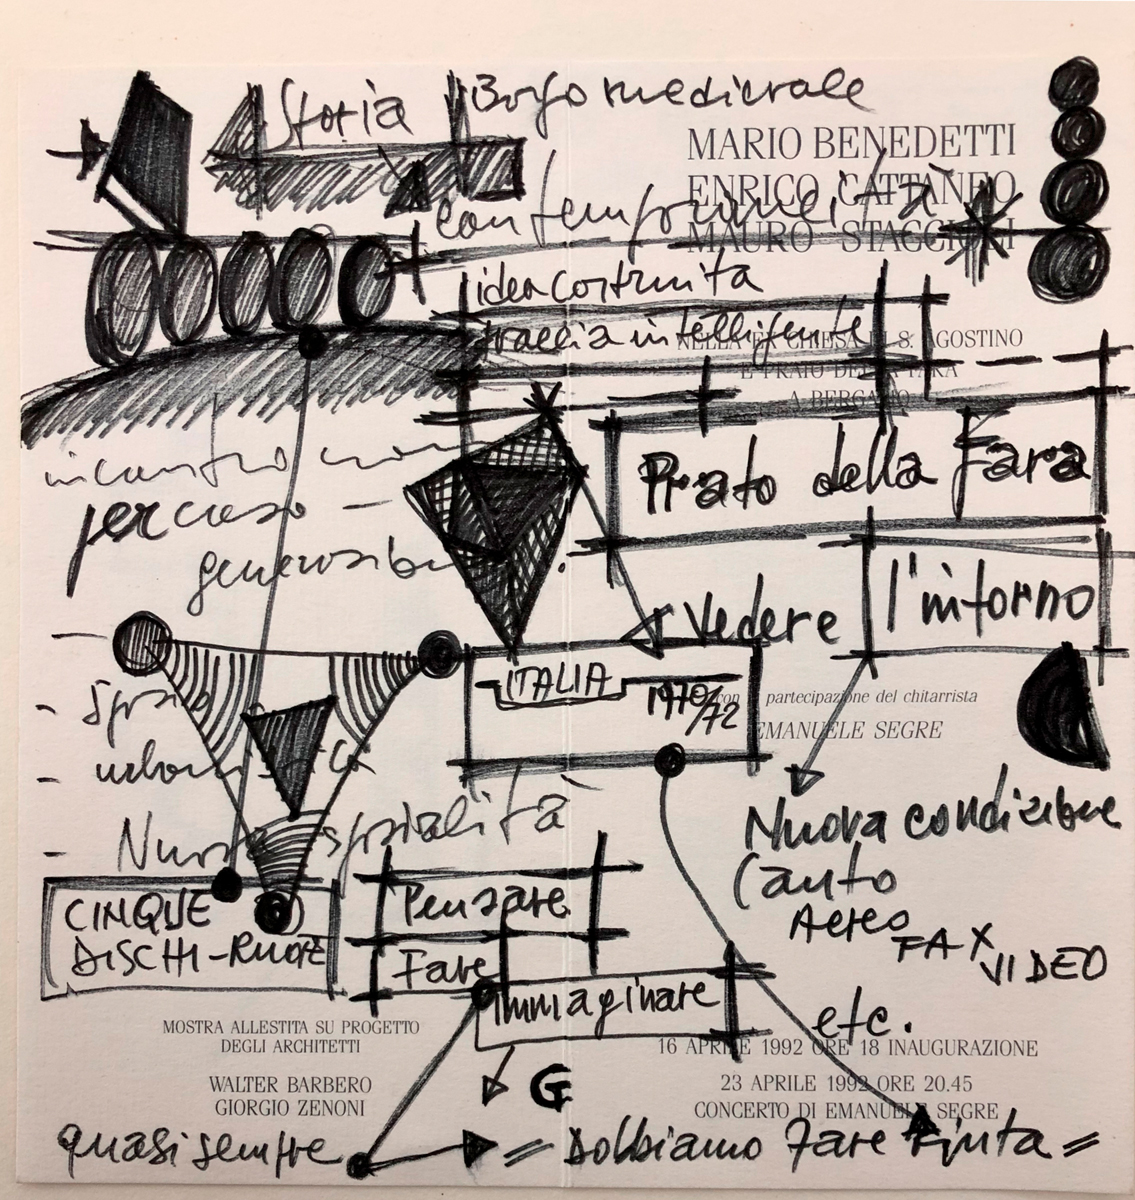 Storia
Borgo medievale
MARIO BENEDETTI
ENRICO CATTANEO
MAURO STACCIOLI
contemporaneità
idea costruita
traccia intelligente
NELLA EX CHIESA DI S. AGOSTINO
E PRATO DELLA FARA
A BERGAMO
Prato della Fara
incontro non
per caso -
l'intorno
Vedere
ITALIA
1970/72
con partecipazione del chitarrista
EMANUELE SEGRE
- Spazio
- Nuova spazialità
Nuova condizione
(auto
Aereo
FAX
VIDEO
etc.
CINQUE
DISCHI-RUOTE
Pensare
Fare
immaginare
MOSTRA ALLESTITA SU PROGETTO
DEGLI ARCHITETTI
WALTER BARBERO
GIORGIO ZENONI
16 APRILE 1992 ORE 18 INAUGURAZIONE
23 APRILE 1992 ORE 20.45
CONCERTO DI EMANUELE SEGRE
G
quasi sempre
= dobbiamo fare finta =